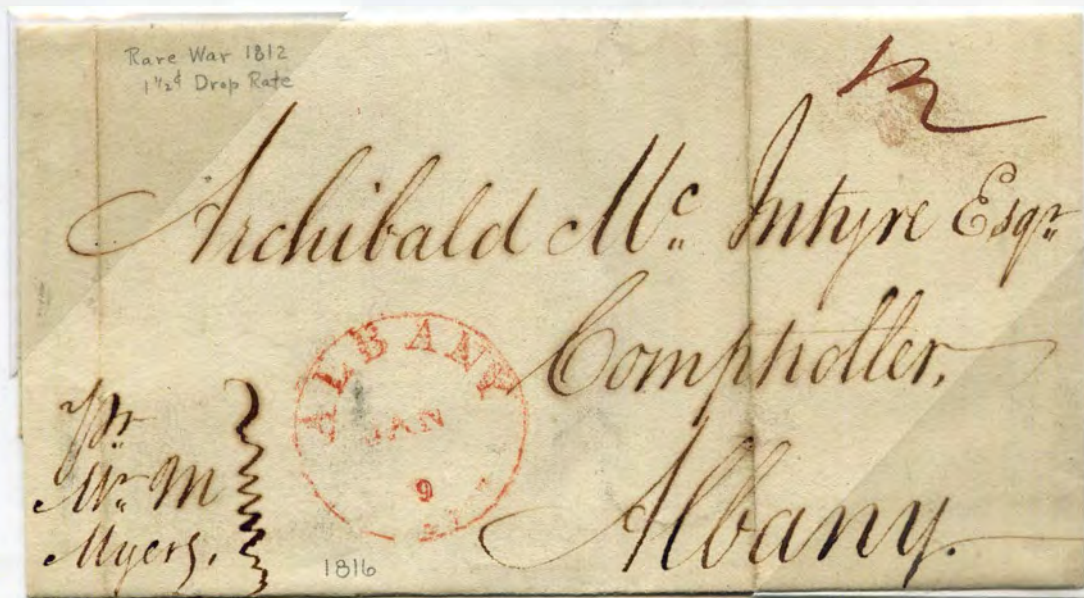 Rare War 1812
1 1/2¢ Drop Rate
Archibald Mc. Intyre Esqr.
Comptroller,
Albany.
ALBANY
JAN
9
pr.
Mr. M
Myers.
1816